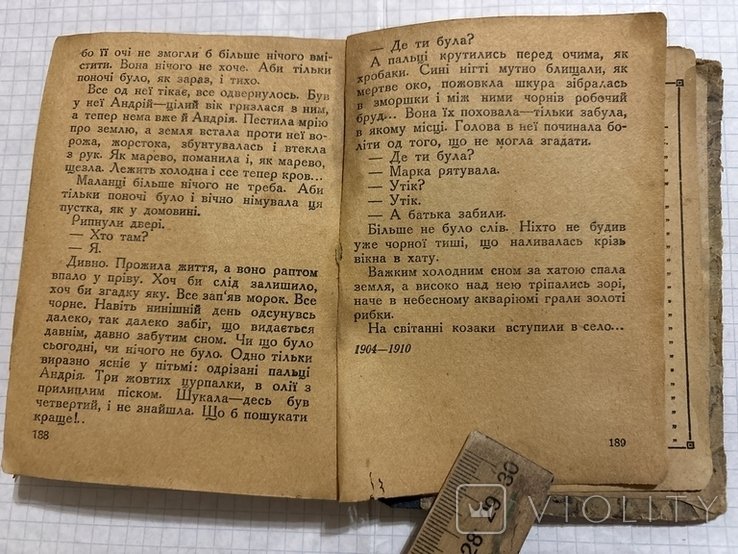 бо її очі не змогли б більше нічого вмі-
стити. Вона нічого не хоче. Аби тільки
поночі було, як зараз, і тихо.
Все од неї тікає, все одвернулось. Був
у неї Андрій—цілий вік гризлася в ним,
а тепер нема вже й Андрія. Пестила мрію
про землю, а земля встала проти неї во-
рожа, жорстока, збунтувалась і втекла
з рук. Як марево, поманила і, як марево,
щезла. Лежить холодна і ссе тепер кров...
Маланці більше нічого не треба. Аби
тільки поночі було і вічно німувала ця
пустка, як у домовині.
Рипнули двері.
— Хто там?
— Я.
Дивно. Прожила життя, а воно раптом
впало у пріву. Хоч би слід залишило,
хоч би згадку яку. Все зап'яв морок. Все
чорне. Навіть нинішній день одсунувсь
далеко, так далеко забіг, що видається
давнім, давно забутим сном. Чи що було
сьогодні, чи нічого не було. Одно тільки
виразно ясніє у пітьмі: одрізані пальці
Андрія. Три жовтих цурпалки, в олії з
прилиплим піском. Шукала—десь був
четвертий, і не знайшла. Що б пошукати
краще!..
188
— Де ти була?
А пальці крутились перед очима, як
хробаки. Сині нігті мутно блищали, як
мертве око, пожовкла шкура зібралась
в зморшки і між ними чорнів робочий
бруд... Вона їх поховала—тільки забула,
в якому місці. Голова в неї починала бо-
літи од того, що не могла згадати.
— Де ти була?
— Марка рятувала.
— Утік?
— Утік.
— А батька забили.
Більше не було слів. Ніхто не будив
уже чорної тиші, що наливалась крізь
вікна в хату.
Важким холодним сном за хатою спала
земля, а високо над нею тріпались зорі,
наче в небесному акваріюмі грали золоті
рибки.
На світанні козаки вступили в село...
1904—1910
189
28 29 30
VIOLITY